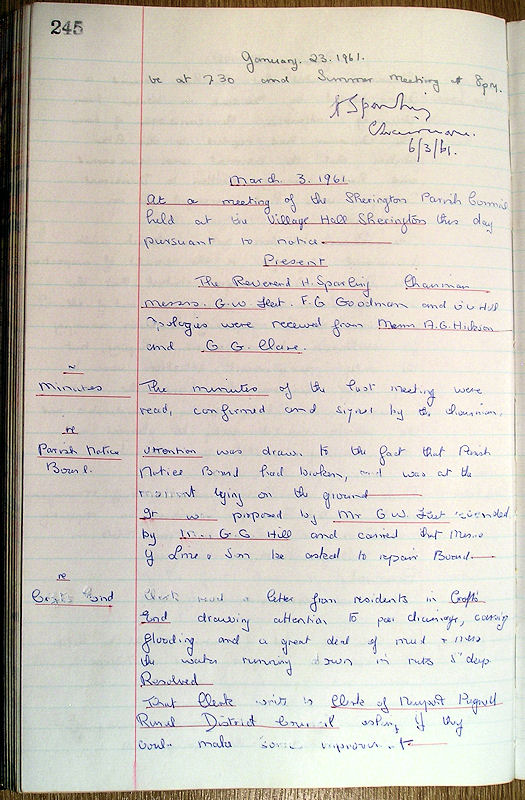 245
January. 23. 1961.
be at 7.30 and Summer meeting at 8pm.
H Sparling
Chairman.
6/3/61.
March 3. 1961
At a meeting of the Sherington Parish Council
held at the Village Hall Sherington this day
pursuant to notice
Present
The Reverend H. Sparling Chairman
Messrs. G. W. Feet. F. G Goodman and Hill
Apologies were received from Messrs A. G. Hickson
and G G. Clare.
re
Minutes The minutes of the last meeting were
read, confirmed and signed by the chairman.
re
Parish Notice attention was drawn to the fact that Parish
Board. Notice Board had broken, and was at the
moment lying on the ground
It was proposed by Mr G W. Feet seconded
by G. G Hill and carried that Messrs
G Line & Son be asked to repair Board.
re
Crofts End Clerk read a letter from residents in Crofts
End drawing attention to poor drainage, causing
flooding and a great deal of mud & mess
the water running down in ruts 5" deep
Resolved
That Clerk write to Clerk of Newport Pagnell
Rural District Council asking if they
could make some improvement